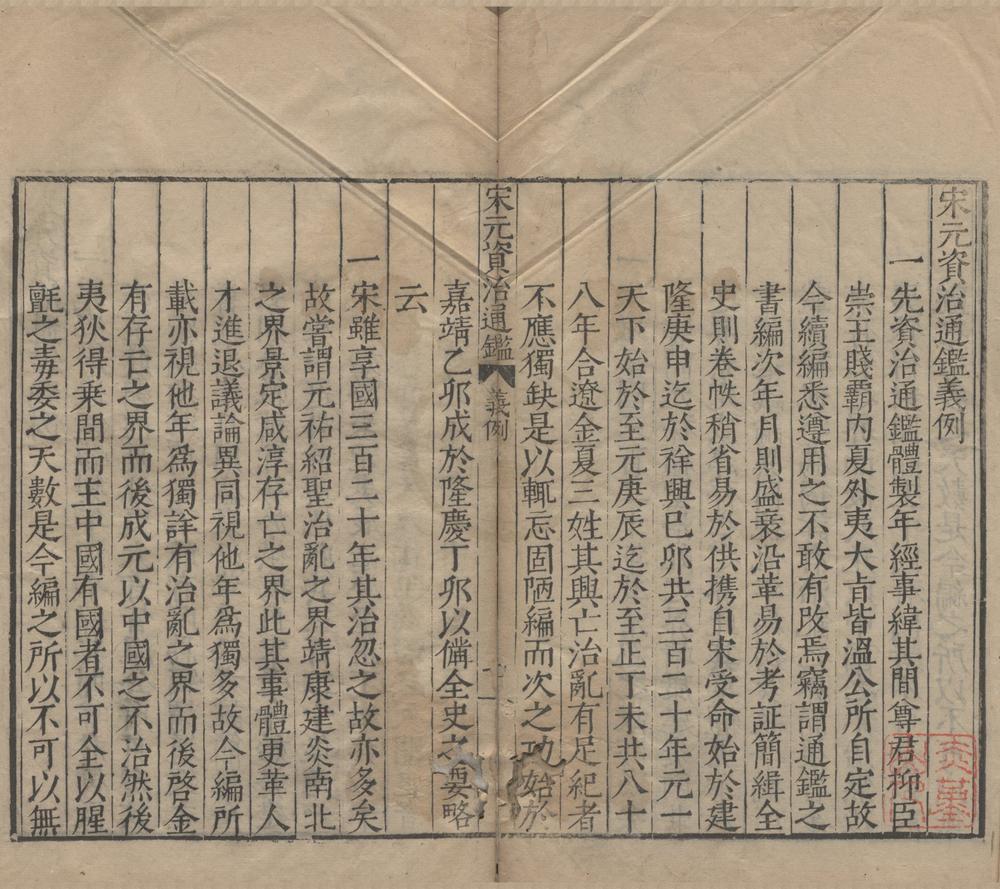 宋元資治通鑑義例
一先資治通鑑體製年經事緯其間尊君抑臣
崇王賤霸内夏外夷大旨皆溫公所自定故
今續編悉遵用之不敢有改焉竊謂通鑑之
書編次年月則盛衰沿革易於考証簡緝全
史則卷帙稍省易於供携自宋受命始於建
隆庚申迄於祥興巳卯共三百二十年元一
天下始於至元庚辰迄於至正丁未共八十
八年合遼金夏三姓其興亡治亂有足紀者
不應獨缺是以輒忘固陋編而次之功始於
宋元資治通鑑 義例 一
嘉靖乙卯成於隆慶丁卯以俻全史之要略
云
一宋雖享國三百二十年其治忽之故亦多矣
故嘗謂元祐紹聖治亂之界靖康建炎南北
之界景定咸淳存亡之界此其事體更革人
才進退議論異同視他年爲獨多故今編所
載亦視他年爲獨詳有治亂之界而後啓金
有存亡之界而後成元以中國之不治然後
夷狄得乗間而主中國有國者不可全以腥
氈之毒委之天數是今編之所以不可以無